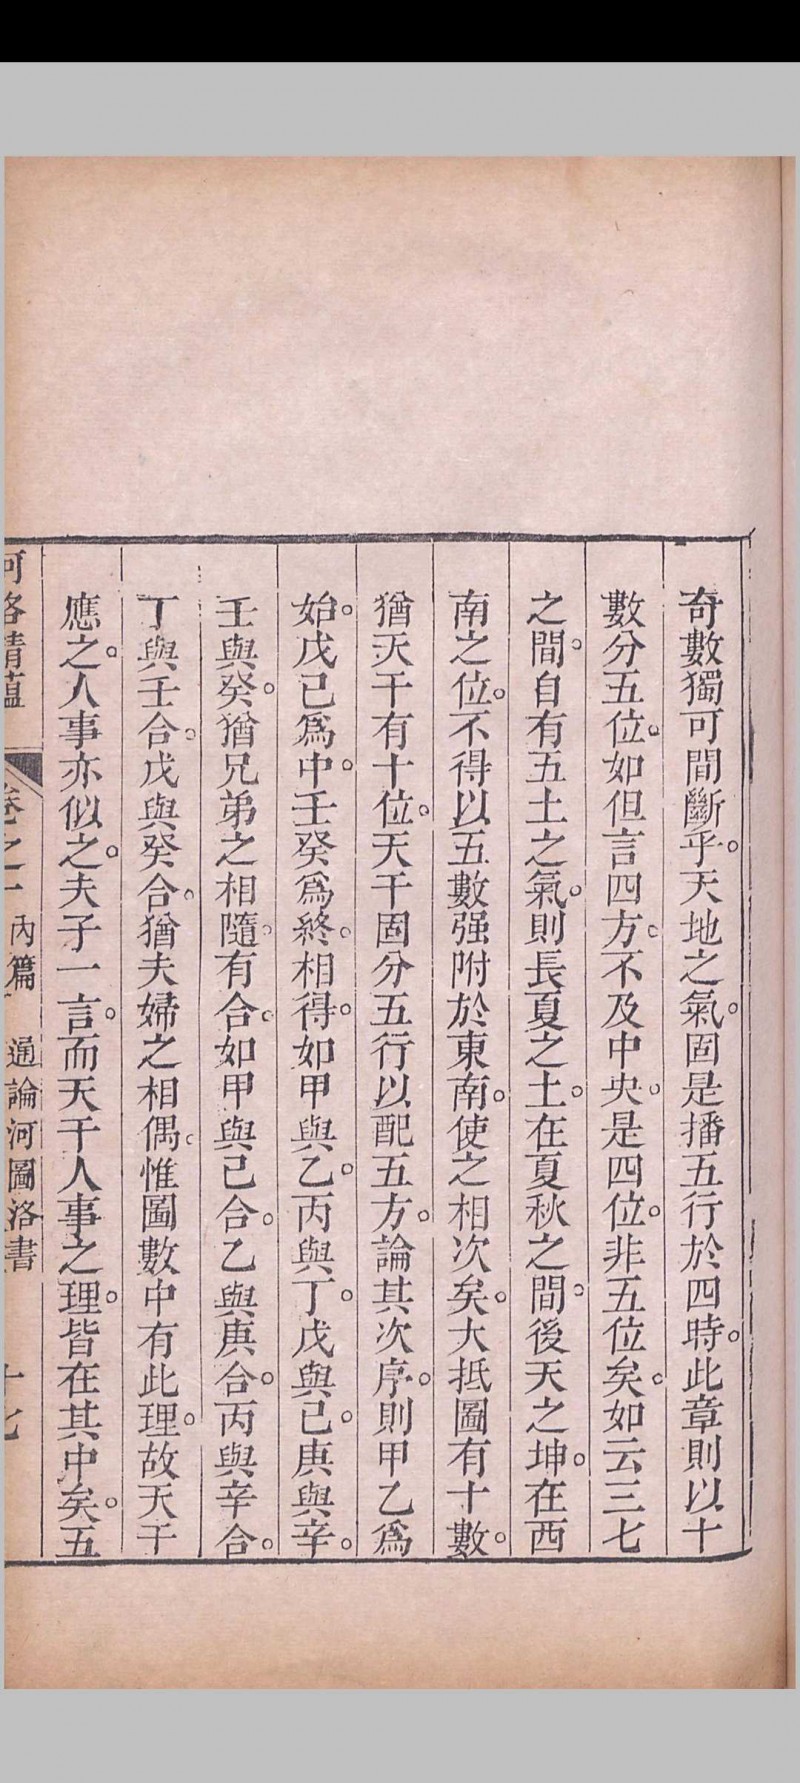 奇數獨可間斷乎。天地之氣。固是播五行於四時。此章則以十
數分五位。如但言四方。不及中央。是四位。非五位矣。如云三七
之間。自有五土之氣。則長夏之土。在夏秋之間。後天之坤。在西
南之位。不得以五數强附於東南。使之相次矣。大抵圖有十數。
猶天干有十位。天干固分五行以配五方。論其次序。則甲乙爲
始。戊己爲中。壬癸爲終。相得。如甲與乙。丙與丁。戊與己。庚與辛。
壬與癸。猶兄弟之相隨。有合。如甲與己合。乙與庚合。丙與辛合。
丁與壬合。戊與癸合。猶夫婦之相偶。惟圖數中有此理。故天干
應之。人事亦似之。夫子一言。而天干人事之理。皆在其中矣。五
河洛精蘊 卷之一 內篇 通論河圖洛書 十七